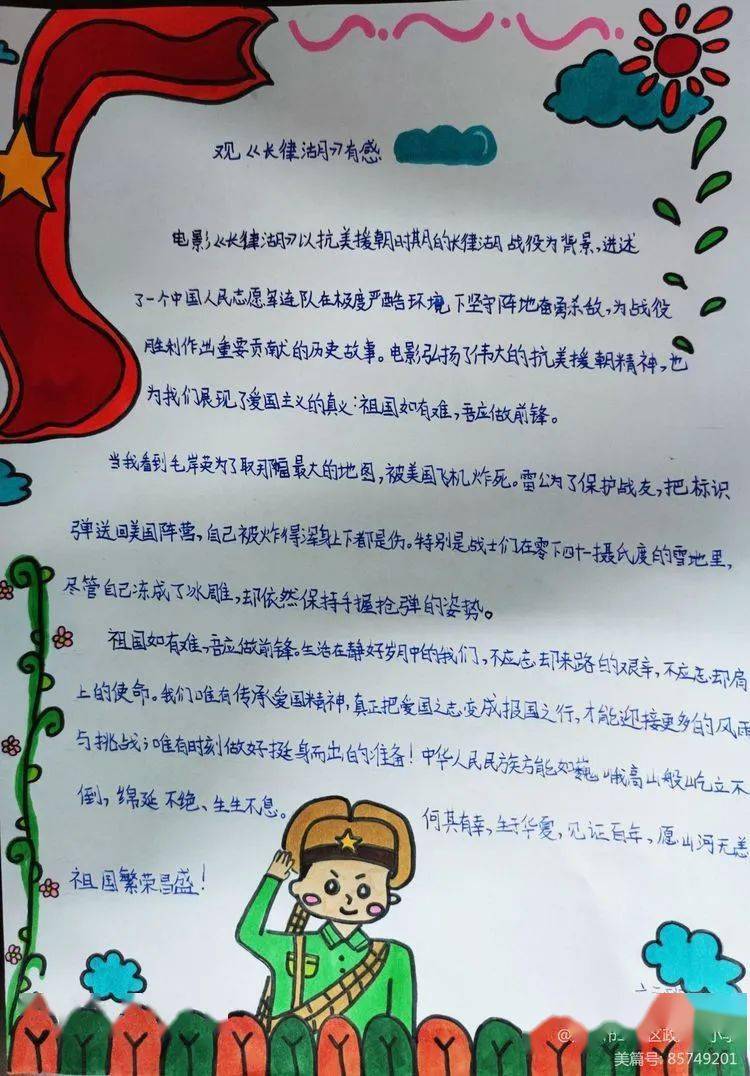 观《长津湖》有感
电影《长津湖》以抗美援朝时期的长津湖战役为背景,讲述
了一个中国人民志愿军连队在极度严酷环境下坚守阵地奋勇杀敌,为战役
胜利作出重要贡献的历史故事。电影弘扬了伟大的抗美援朝精神,也
为我们展现了爱国主义的真义:祖国如有难,吾应做前锋。
当我看到毛岸英为了取那幅最大的地图,被美国飞机炸死。雷公为了保护战友,把标识
弹送回美国阵营,自己被炸得浑身上下都是伤。特别是战士们在零下四十摄氏度的雪地里,
尽管自己冻成了冰雕,却依然保持手握抢弹的姿势。
祖国如有难,吾应做前锋。生活在静好岁月中的我们,不应忘却来路的艰辛,不应忘却肩
上的使命。我们唯有传承爱国精神,真正把爱国之志变成报国之行,才能迎接更多的风雨
与挑战;唯有时刻做好挺身而出的准备!中华人民民族方能如巍峨高山般屹立不
倒,绵延不绝、生生不息。 何其有幸,生于华夏,见证百年,愿山河无恙
祖国繁荣昌盛!
美篇号: 85749201